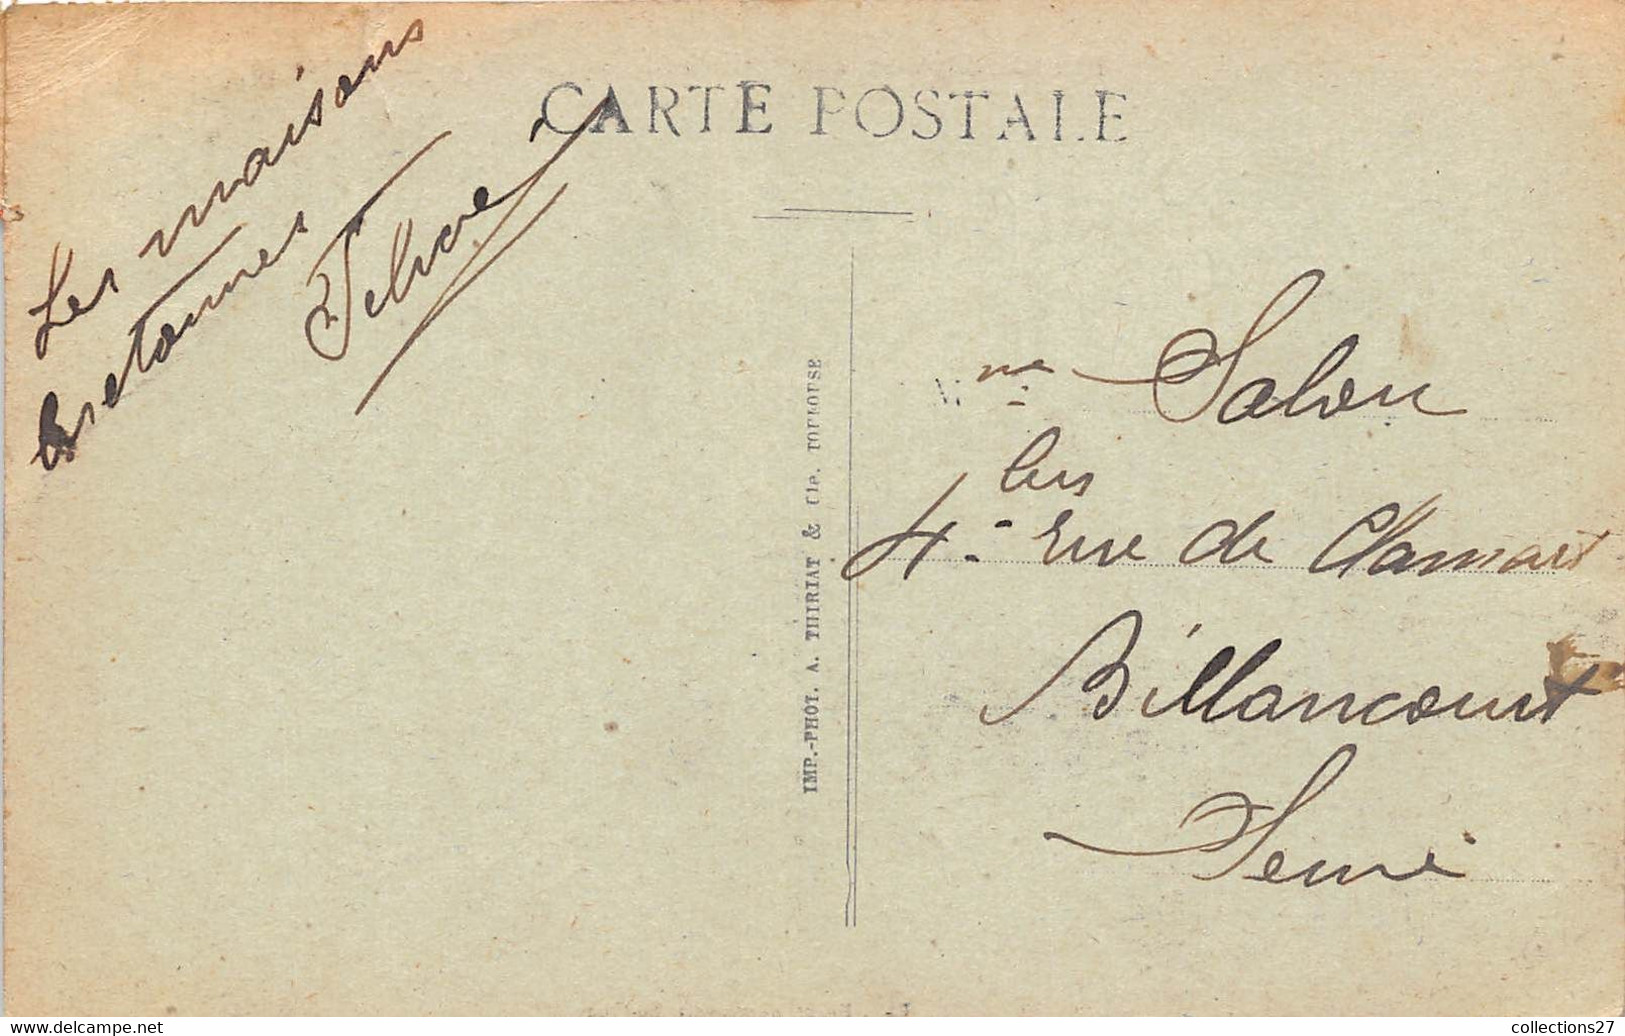 CARTE POSTALE
Les maisons
bretonnes
IMP.-PHOT. A. THIRIAT & Cie. TOULOUSE
Mme
bis
4 - Rue de Clamart
Billancourt
Seine
www.delcampe.net
collections27